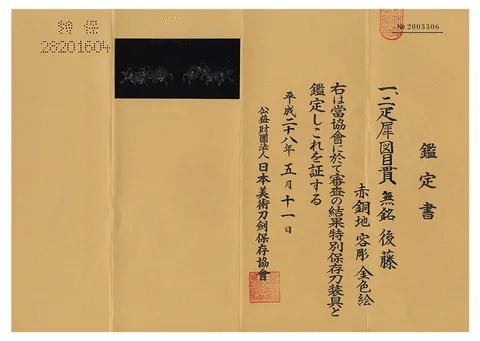 № 2003306
鑑定書
一、二疋犀図目貫 無銘 後藤
赤銅地 容彫 金色絵
右は當協會に於て審査の結果特別保存刀装具と
鑑定しこれを証する
平成二十八年 五月十一日
公益財團法人 日本美術刀剣保存協會
特保
28201604